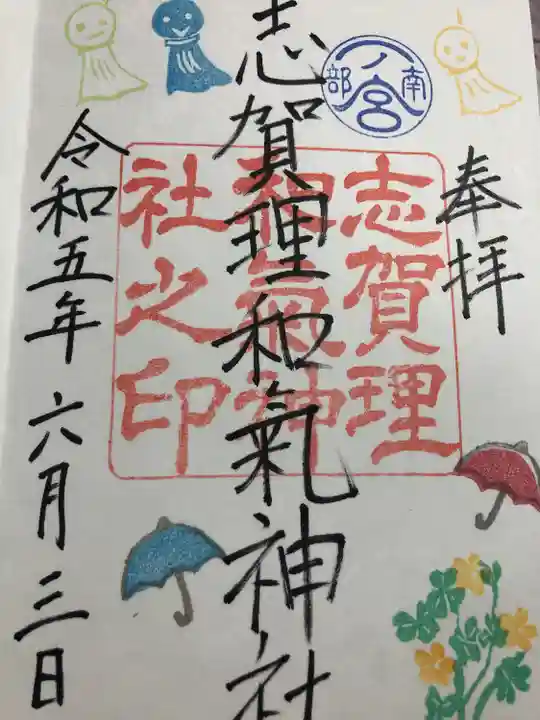 奉拝
一ノ宮
南部
志賀理
和氣神
社之印
志賀理和氣神社
令和五年六月三日